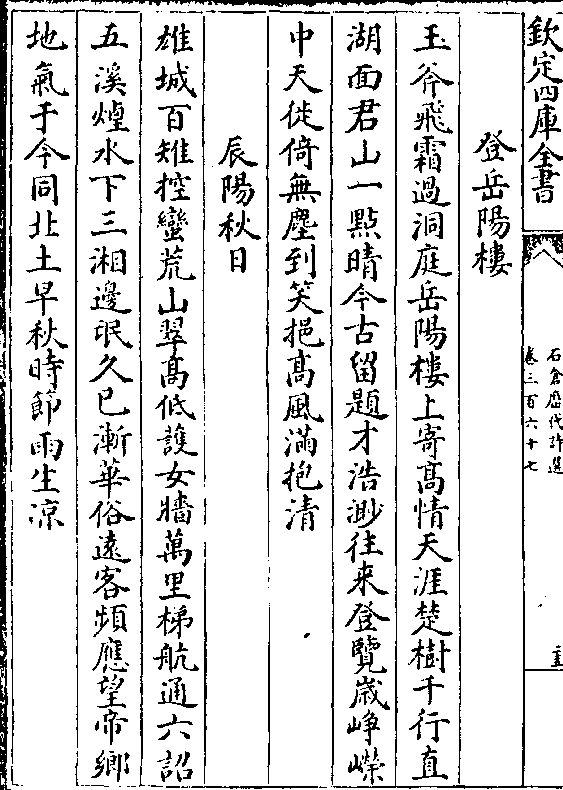 欽定四庫全書
石倉歷代詩選
卷三百六十七
登岳陽樓
玉斧飛霜過洞庭岳陽樓上寄高情天涯楚樹千行直
湖面君山一點晴今古留題才浩渺往来登覽歲崢嶸
中天徙倚無塵到笑挹高風滿抱清
辰陽秋日
雄城百雉控蠻荒山翠髙低護女牆萬里梯航通六詔
五溪煌水下三湘邊氓久已漸華俗遠客頻應望帝鄉
地氣于今同北土早秋時節雨生凉